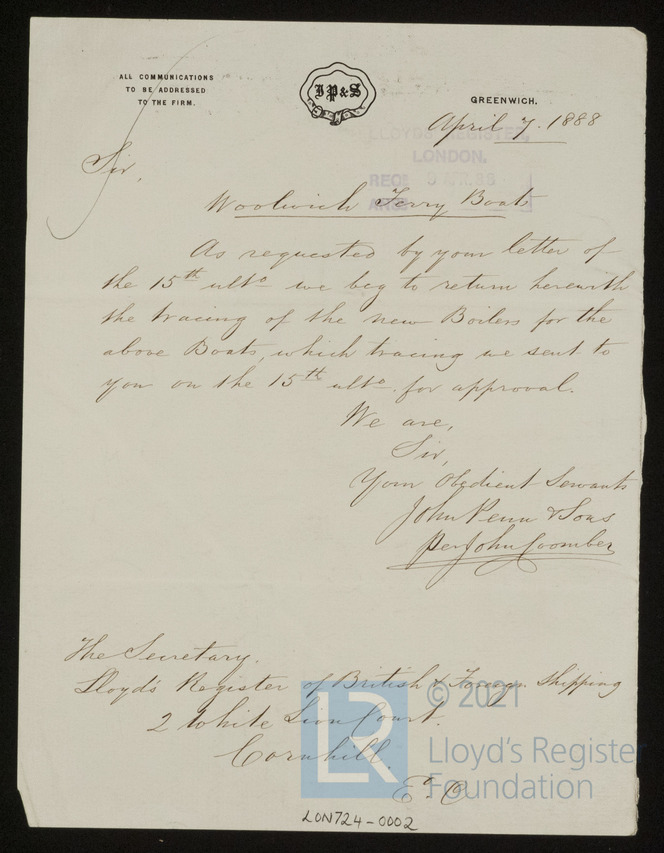 ALL COMMUNICATIONS
TO BE ADDRESSED
TO THE FIRM.
JP&S
GREENWICH.
April 7. 1888
LLOYD'S REGISTER,
LONDON.
REC
Sir,
Woolwich Ferry Boats
As requested by your letter of
the 15th ulto we beg to return herewith
the tracing of the new Boilers for the
above Boats, which tracing we sent to
you on the 15th ulto. for approval.
We are,
Sir,
Your Obedient Servants
John Penn & Sons
per John Coomber
The Secretary.
Lloyd's Register of British & Foreign Shipping
2 White Lion Court.
Cornhill.
E. C
LR
© 2021
Lloyd's Register
Foundation
LON724-0002